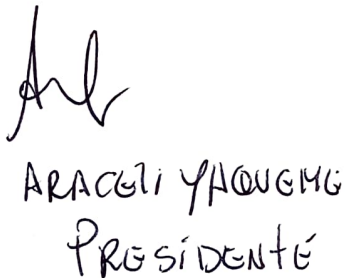 ARACELI YAQUEME
PRESIDENTE